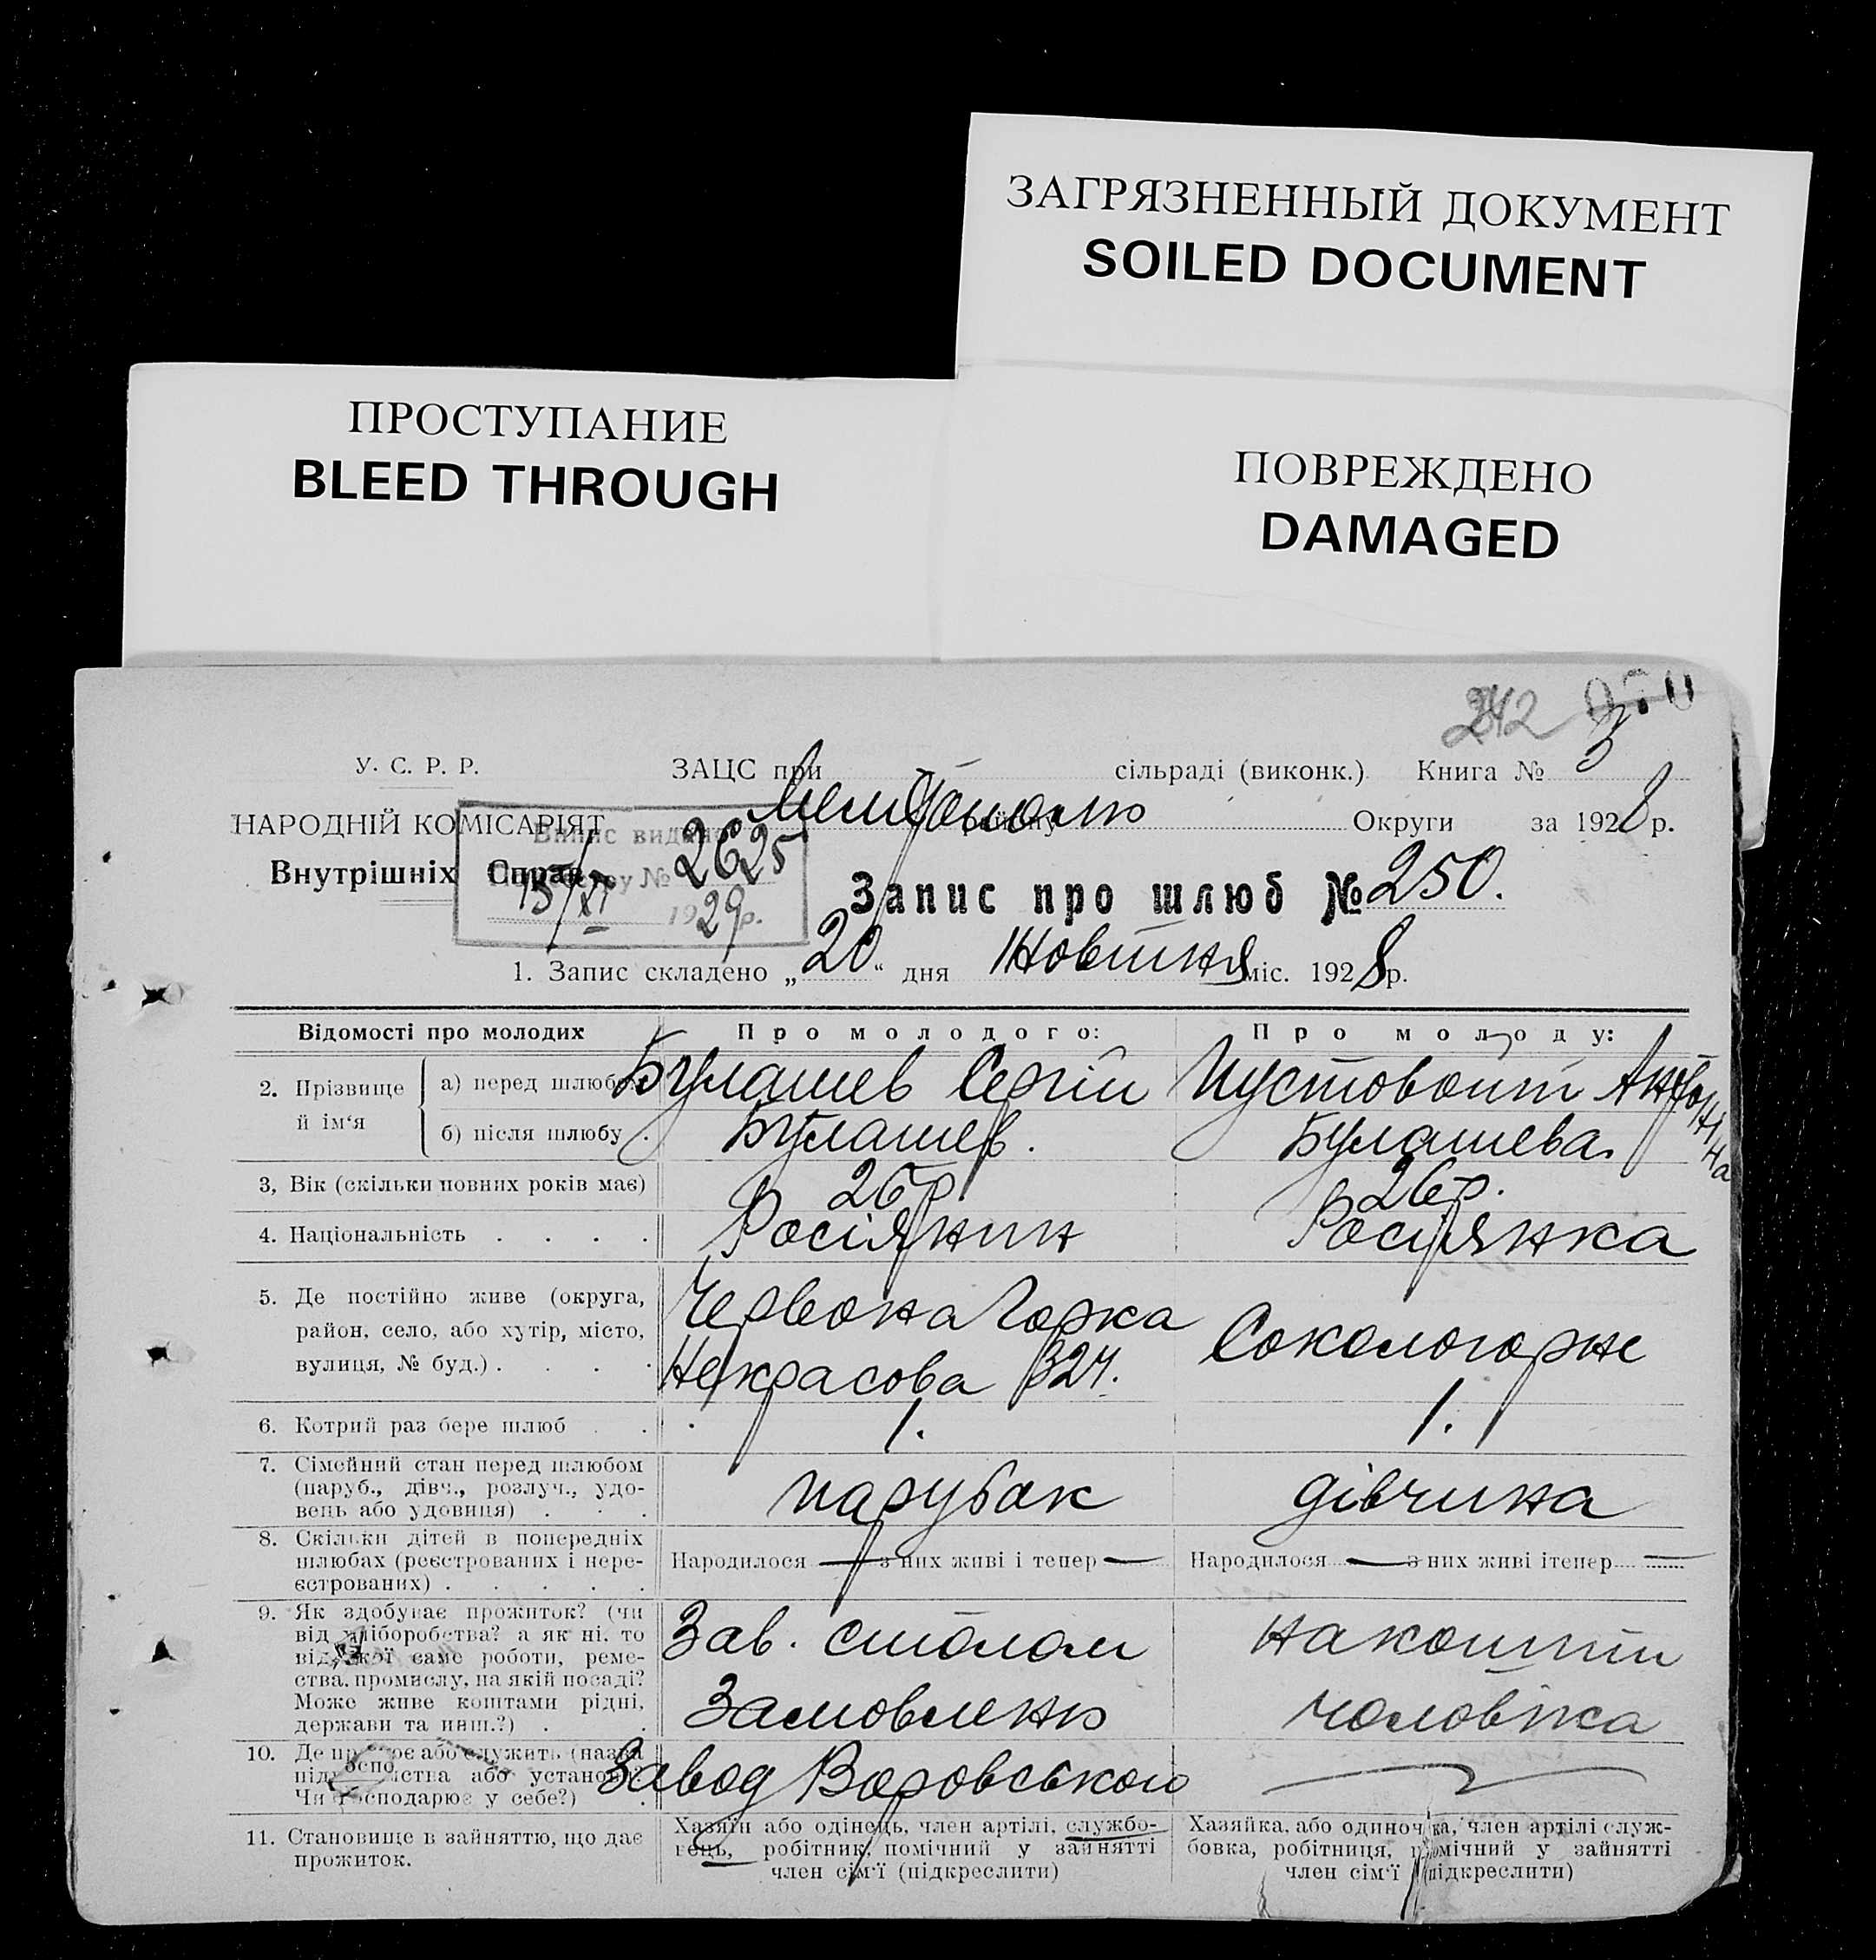 ЗАГРЯЗНЕННЫЙ ДОКУМЕНТ
SOILED DOCUMENT
ПРОСТУПАНИЕ
BLEED THROUGH
ПОВРЕЖДЕНО
DAMAGED
242
У. С. Р. Р.
ЗАЦС при сільраді (виконк.) Книга № 3
НАРОДНІЙ КОМІСАРІЯТ
Внутрішніх Справ
району Округи за 1928 р.
Випис видано
№ 2625
15/XI 1929 р.
Запис про шлюб № 250.
1. Запис складено „20“ дня Жовтня міс. 1928 р.
Відомості про молодих
Про молодого:
Про молоду:
2. Прізвище й ім'я
а) перед шлюбом Булашев Сергій Пустовойт Антоніна
б) після шлюбу . Булашев. Булашева.
3, Вік (скільки повних років має) 26 р. 26 р.
4. Національність . . . . Росіянин Росіянка
5. Де постійно живе (округа,
район, село, або хутір, місто,
вулиця, № буд.) . . . .
Червона Горка
Некрасова
Сокологорне
6. Котрий раз бере шлюб . . 1. 1.
7. Сімейний стан перед шлюбом
(паруб., дівч., розлуч., удо-
вець або удовиця) . . .
парубак
дівчина
8. Скільки дітей в попередніх
шлюбах (реєстрованих і нере-
єстрованих) . . . . .
Народилося — з них живі і тепер —
Народилося — з них живі ітепер —
9. Як здобуває прожиток? (чи
від хліборобства? а як ні, то
від якої саме роботи, реме-
ства, промислу, на якій посаді?
Може живе коштами рідні,
держави та инш.?) . .
Зав. столом
Замовлень
на кошти
чоловіка
10. Де працює або служить (назва
підприємства або установи?
Чи господарює у себе?) .
Завод Воровського
—
11. Становище в зайняттю, що дає
прожиток.
Хазяїн або одінець, член артілі, службо-
вець, робітник, помічний у зайнятті
член сім'ї (підкреслити)
Хазяйка, або одиночка, член артілі служ-
бовка, робітниця, помічний у зайнятті
член сім'ї (підкреслити)